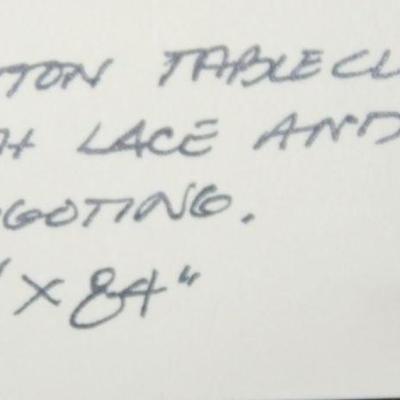 TON TABLECL
H LACE AND
GOTING.
" X 84"